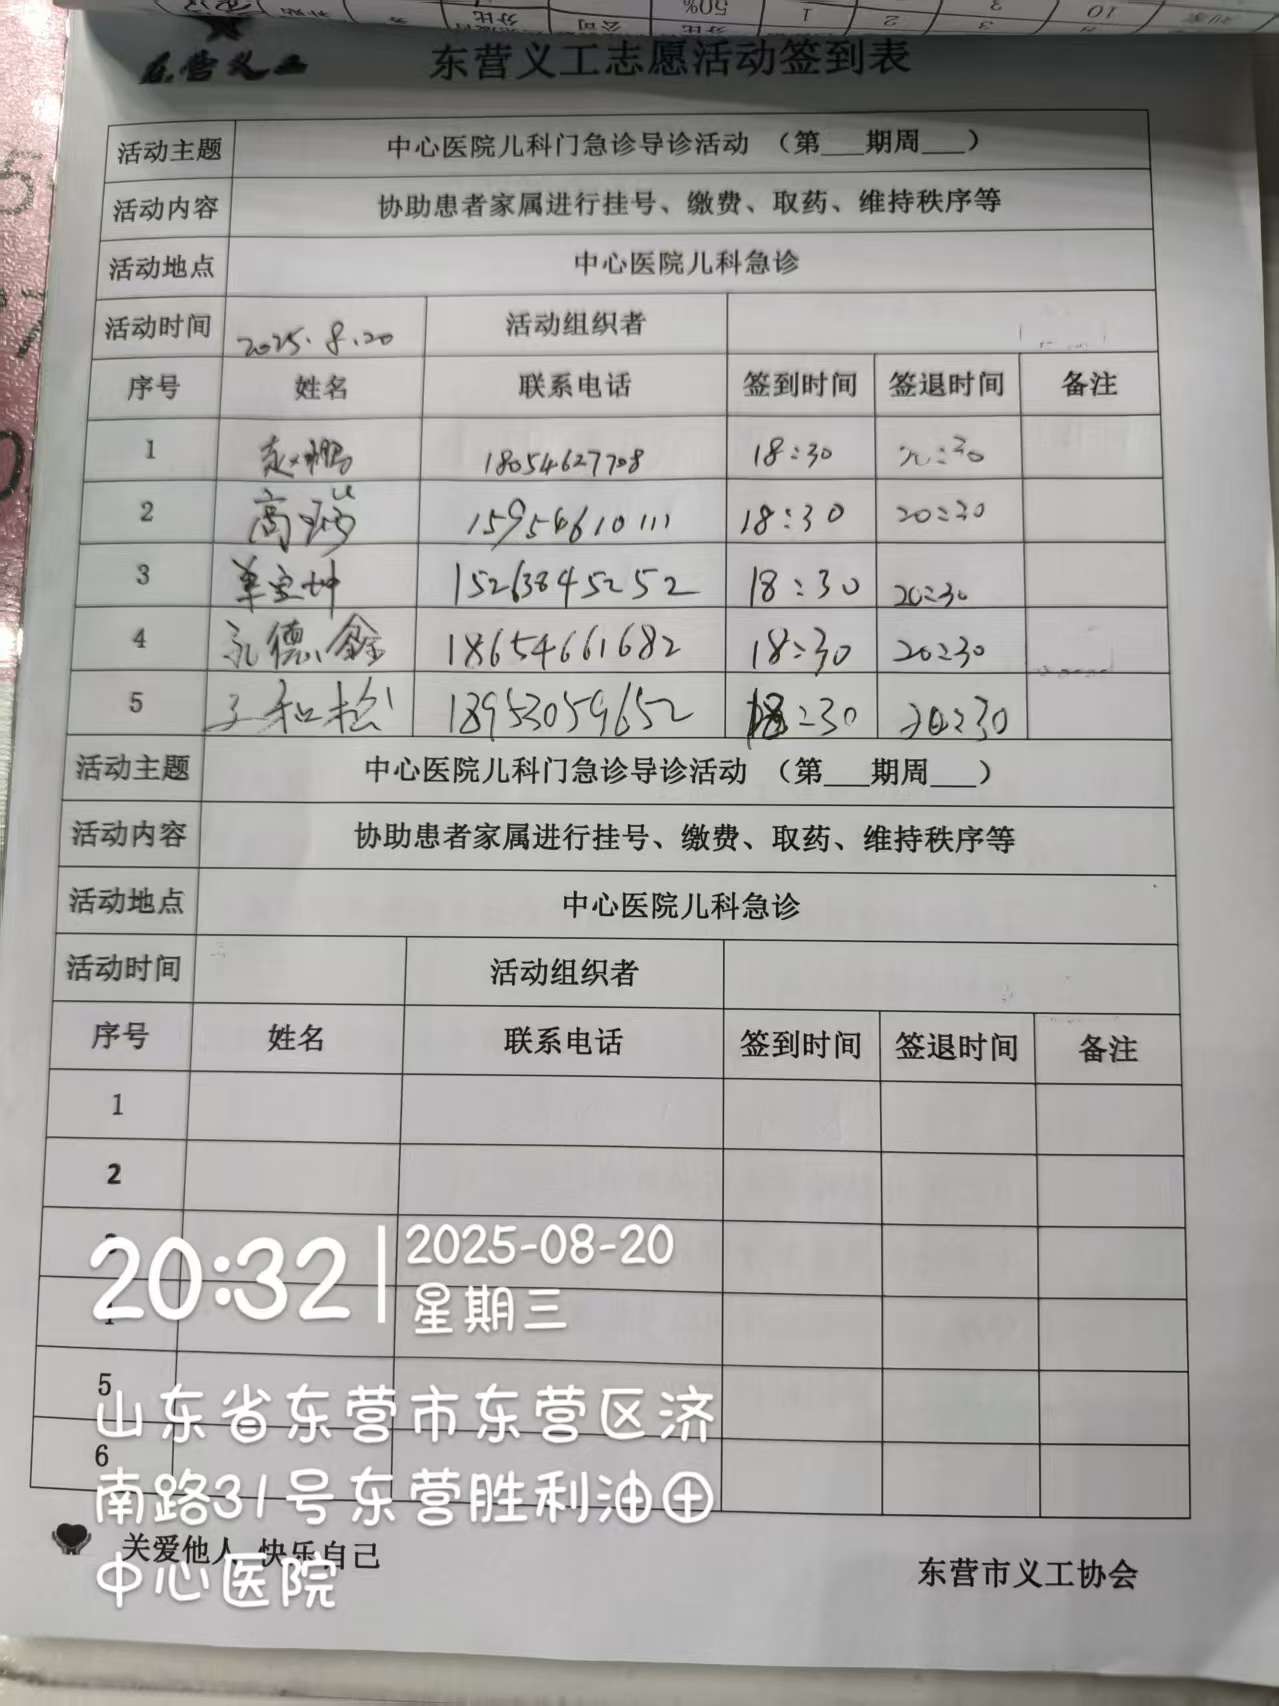 50%
1
2
3
10
东营义工
东营义工志愿活动签到表
活动主题 中心医院儿科门急诊导诊活动 （第___期周___）
活动内容 协助患者家属进行挂号、缴费、取药、维持秩序等
活动地点 中心医院儿科急诊
活动时间 2025.8.20 活动组织者
序号 姓名 联系电话 签到时间 签退时间 备注
1 赵鹏 18054627708 18:30 20:30
2 高瑞 15954610111 18:30 20:30
3 单宝坤 15263845252 18:30 20:30
4 孔德鑫 18654661682 18:30 20:30
5 王和松 18953059652 18:30 20:30
活动主题 中心医院儿科门急诊导诊活动 （第___期周___）
活动内容 协助患者家属进行挂号、缴费、取药、维持秩序等
活动地点 中心医院儿科急诊
活动时间 活动组织者
序号 姓名 联系电话 签到时间 签退时间 备注
1
2
5
6
20:32
2025-08-20
星期三
山东省东营市东营区济
南路31号东营胜利油田
中心医院
关爱他人 快乐自己
东营市义工协会